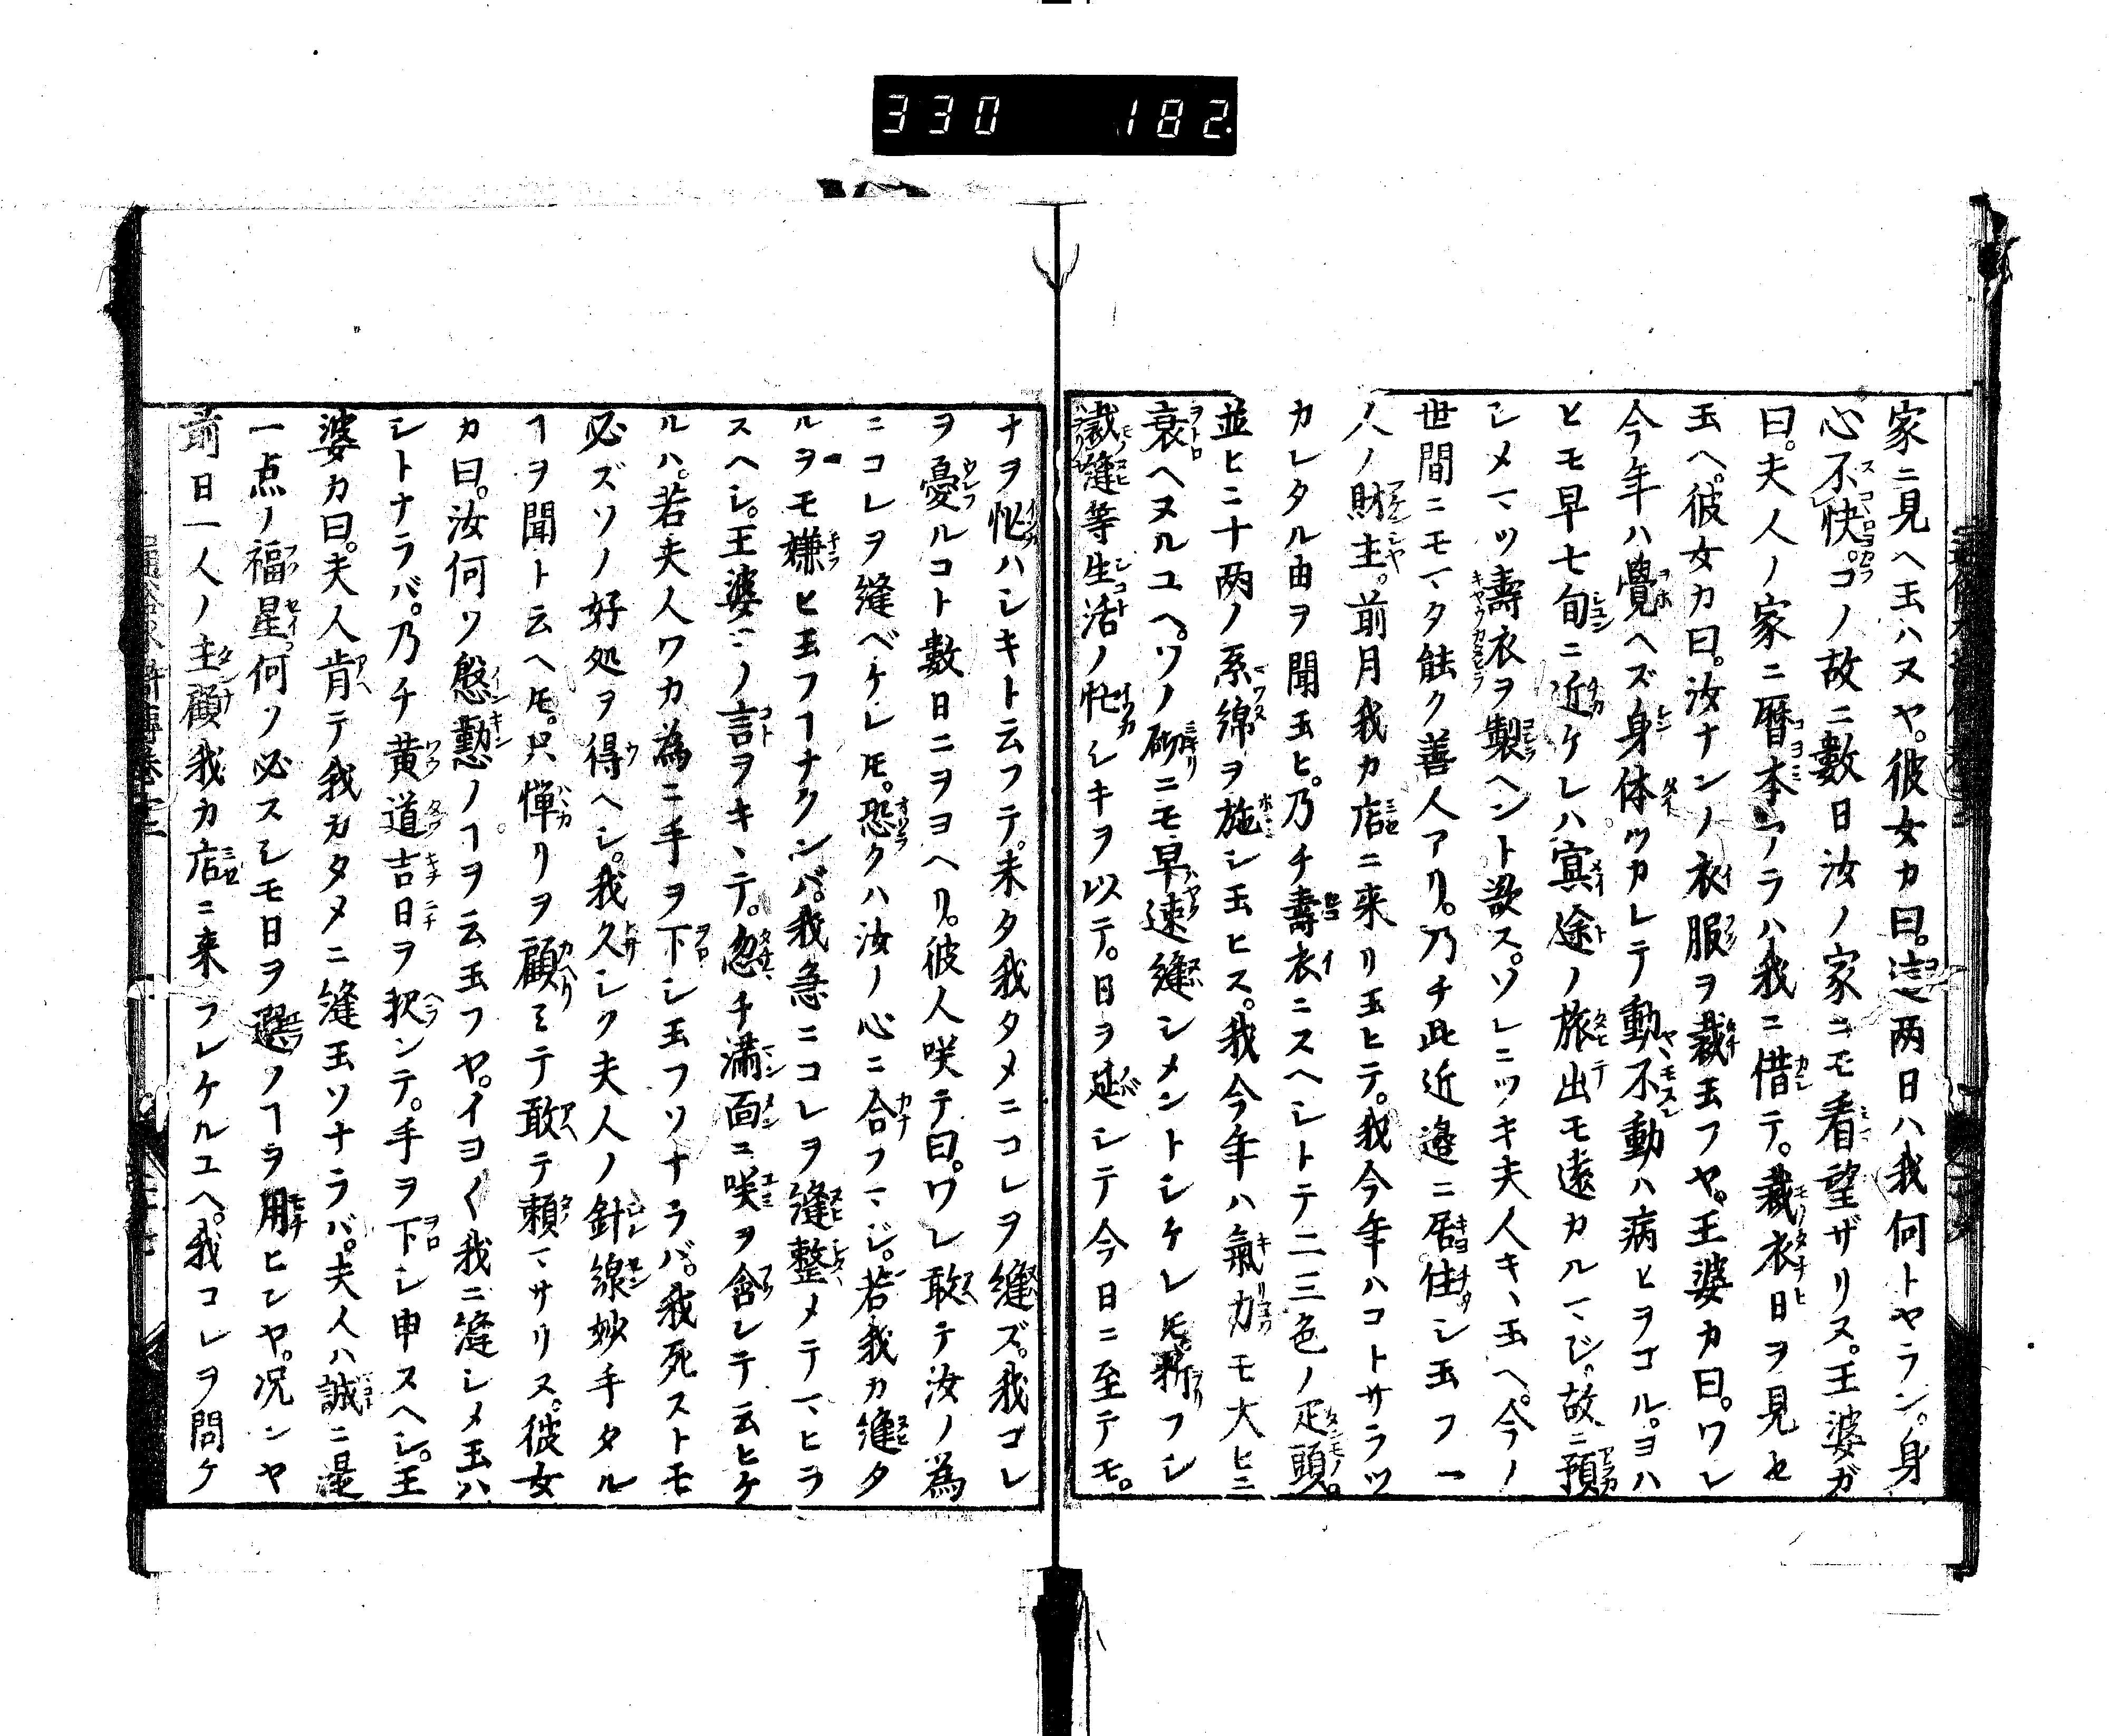 330 182
家ニ見ヘ玉ハヌヤ。彼女カ曰。這両日ハ我何トヤラン。身
心不快。コノ故ニ數日汝ノ家ニモ看望ザリヌ。王婆ガ
曰。夫人ノ家ニ暦本アラハ我ニ借テ。裁衣日ヲ見セ
玉ヘ。彼女カ曰。汝ナンノ衣服ヲ裁玉フヤ。王婆カ曰。ワレ
今年ハ覺ヘズ身体ツカレテ動不動ハ病ヒヲコル。ヨハ
ヒモ早七旬ニ近ケレハ。冥途ノ旅出モ遠カルマジ。故ニ預
シメマツ壽衣ヲ製ヘント欲ス。ソレニツキ夫人キヽ玉ヘ。今ノ
世間ニモマタ能ク善人アリ。乃チ此近邉ニ居住シ玉フ一
人ノ財主。前月我カ店ニ来リ玉ヒテ。我今年ハコトサラツ
カレタル由ヲ聞玉ヒ。乃チ壽衣ニスヘシトテ二三色ノ疋頭。
並ヒニ十两ノ系綿ヲ施シ玉ヒヌ。我今年ハ氣力モ大ヒニ
衰ヘヌルユヘ。ソノ砌ニモ早速縫シメントシケレ𪜈。折フシ
裁縫等生活ノ忙シキヲ以テ。日ヲ延シテ今日ニ至テモ。
ナヲ忙ハシキト云フテ。未タ我タメニコレヲ縫ズ。我コレ
ヲ憂ルコト數日ニヲヨヘリ。彼人咲テ曰。ワレ敢テ汝ノ為
ニコレヲ縫ベケレ𪜈。恐クハ汝ノ心ニ合フマジ。若我カ縫タ
ルヲモ嫌ヒ玉フヿナクンバ。我急ニコレヲ縫整メテマヒラ
スヘシ。王婆コノ言ヲキヽテ。忽チ満面ニ咲ヲ含シテ云ヒケ
ルハ。若夫人ワカ為ニ手ヲ下シ玉フソナラバ。我死ストモ
必ズソノ好処ヲ得ヘシ。我久シク夫人ノ針線妙手タル
ヿヲ聞ト云ヘ𪜈。只憚リヲ顧ミテ敢テ頼マサリヌ。彼女
カ曰。汝何ソ慇懃ノヿヲ云玉フヤ。イヨ〱我ニ縫シメ玉ハ
シトナラバ。乃チ黄道吉日ヲ択ンテ。手ヲ下シ申スヘシ。王
婆カ曰。夫人肯テ我カタメニ縫玉ソナラバ。夫人ハ誠ニ是
一点ノ福星。何ソ必スシモ日ヲ選ノヿヲ用ヒンヤ。况ンヤ
前日一人ノ主顧我カ店ニ来フレケルユヘ。我コレヲ問ケ